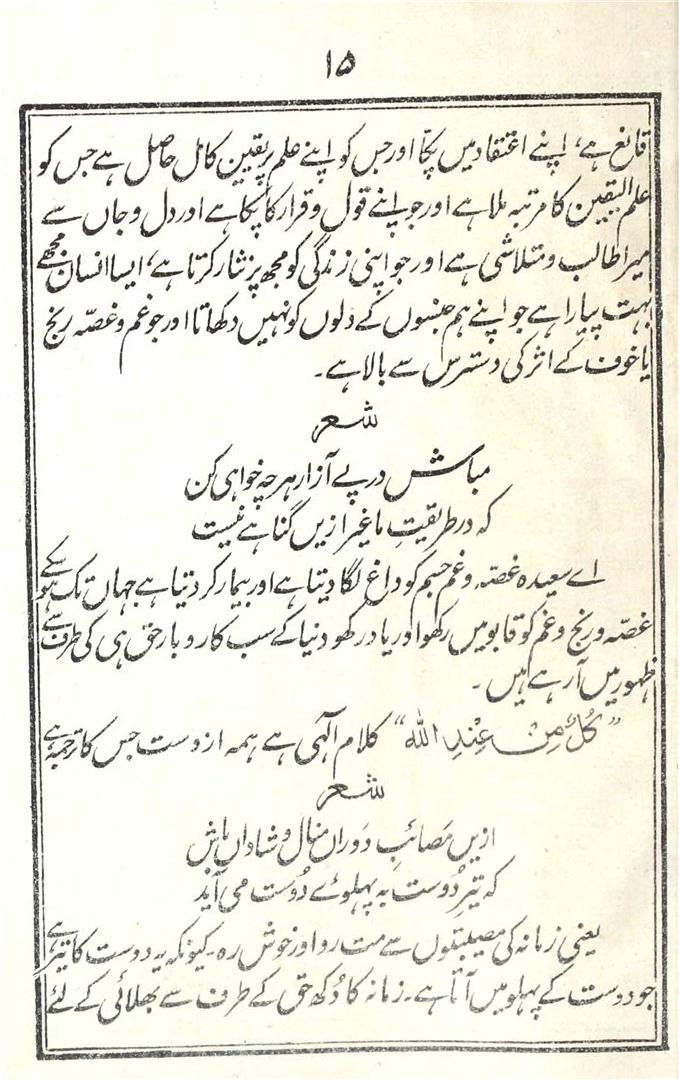 ۱۵
قانع ہے، اپنے اعتقاد میں پکّا اور جس کو اپنے علم پر یقین کامل حاصل ہے جس کو
علم الیقین کا مرتبہ ملا ہے اور جو اپنے قول و قرار کا پکا ہے اور دل و جاں سے
میرا طالب و متلاشی ہے اور جو اپنی زندگی کو مجھ پر نثار کرتا ہے، ایسا انسان مجھے
بہت پیارا ہے جو اپنے ہم جنسوں کے دلوں کو نہیں دکھاتا اور جو غم و غصّہ رنج
یا خوف کے اثر کی دسترس سے بالا ہے۔
شعر
مباش در پے آزار ہر چہ خواہی کن
کہ در طریقیتِ ما غیر ازیں گنا ہے نیست
اے سعیدہ غصّہ و غم جسم کو داغ لگا دیتا ہے اور بیمار کر دیتا ہے جہاں تک ہو سکے
غصّہ و رنج و غم کو قابو میں رکھو اور یاد رکھو دنیا کے سب کاروبار حق ہی کی طرف سے
ظہور میں آ رہے ہیں۔
”کُلٌّ مِنْ عِنْدِ اللّٰه“ کلام الٰہی ہے ہمہ از وست جس کا ترجمہ ہے
شعر
ازیں مَصائبِ دَوراں منال و شاداں باش
کہ تیرِ دُوست بہ پہلوئے دُوست می آید
یعنی زمانہ کی مصیبتوں سے مت رو اور خوش رہ۔ کیونکہ یہ دوست کا تیر ہے
جو دوست کے پہلو میں آتا ہے۔ زمانہ کا دُکھ حق کے طرف سے بھلائی کے لئے